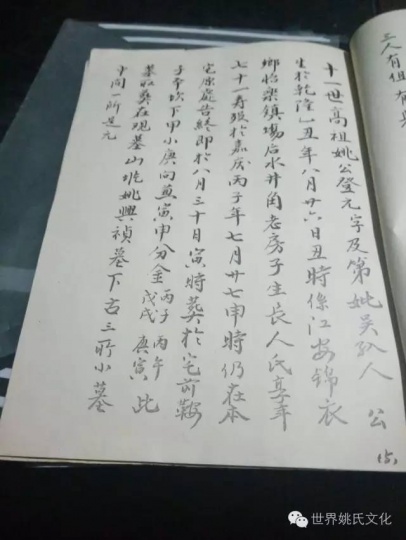 十一世高祖姚公登元字及第妣吴孺人 公
生於乾隆乙丑年八月廿六日丑時係江安錦衣
鄉怡樂鎮場后水井角老房子生長人氏享年
七十一寿殁於嘉庆丙子年七月廿七申時仍在本
宅原處告終即於八月三十日寅時葬於宅前鞍
子本坎下甲小庚向兼寅申分金丙子 丙午
戊戌 庚寅 此
墓 葬在现墓山坵姚興禎墓下右三所小墓
中间一所是元
三人有但有
15
世界姚氏文化